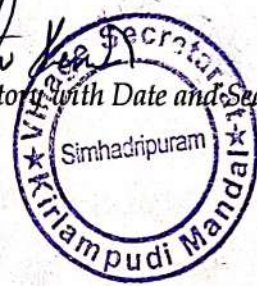 tory with Date and Sea
Village Secretariat
Simhadripuram
★ Kirlampudi Mandal ★